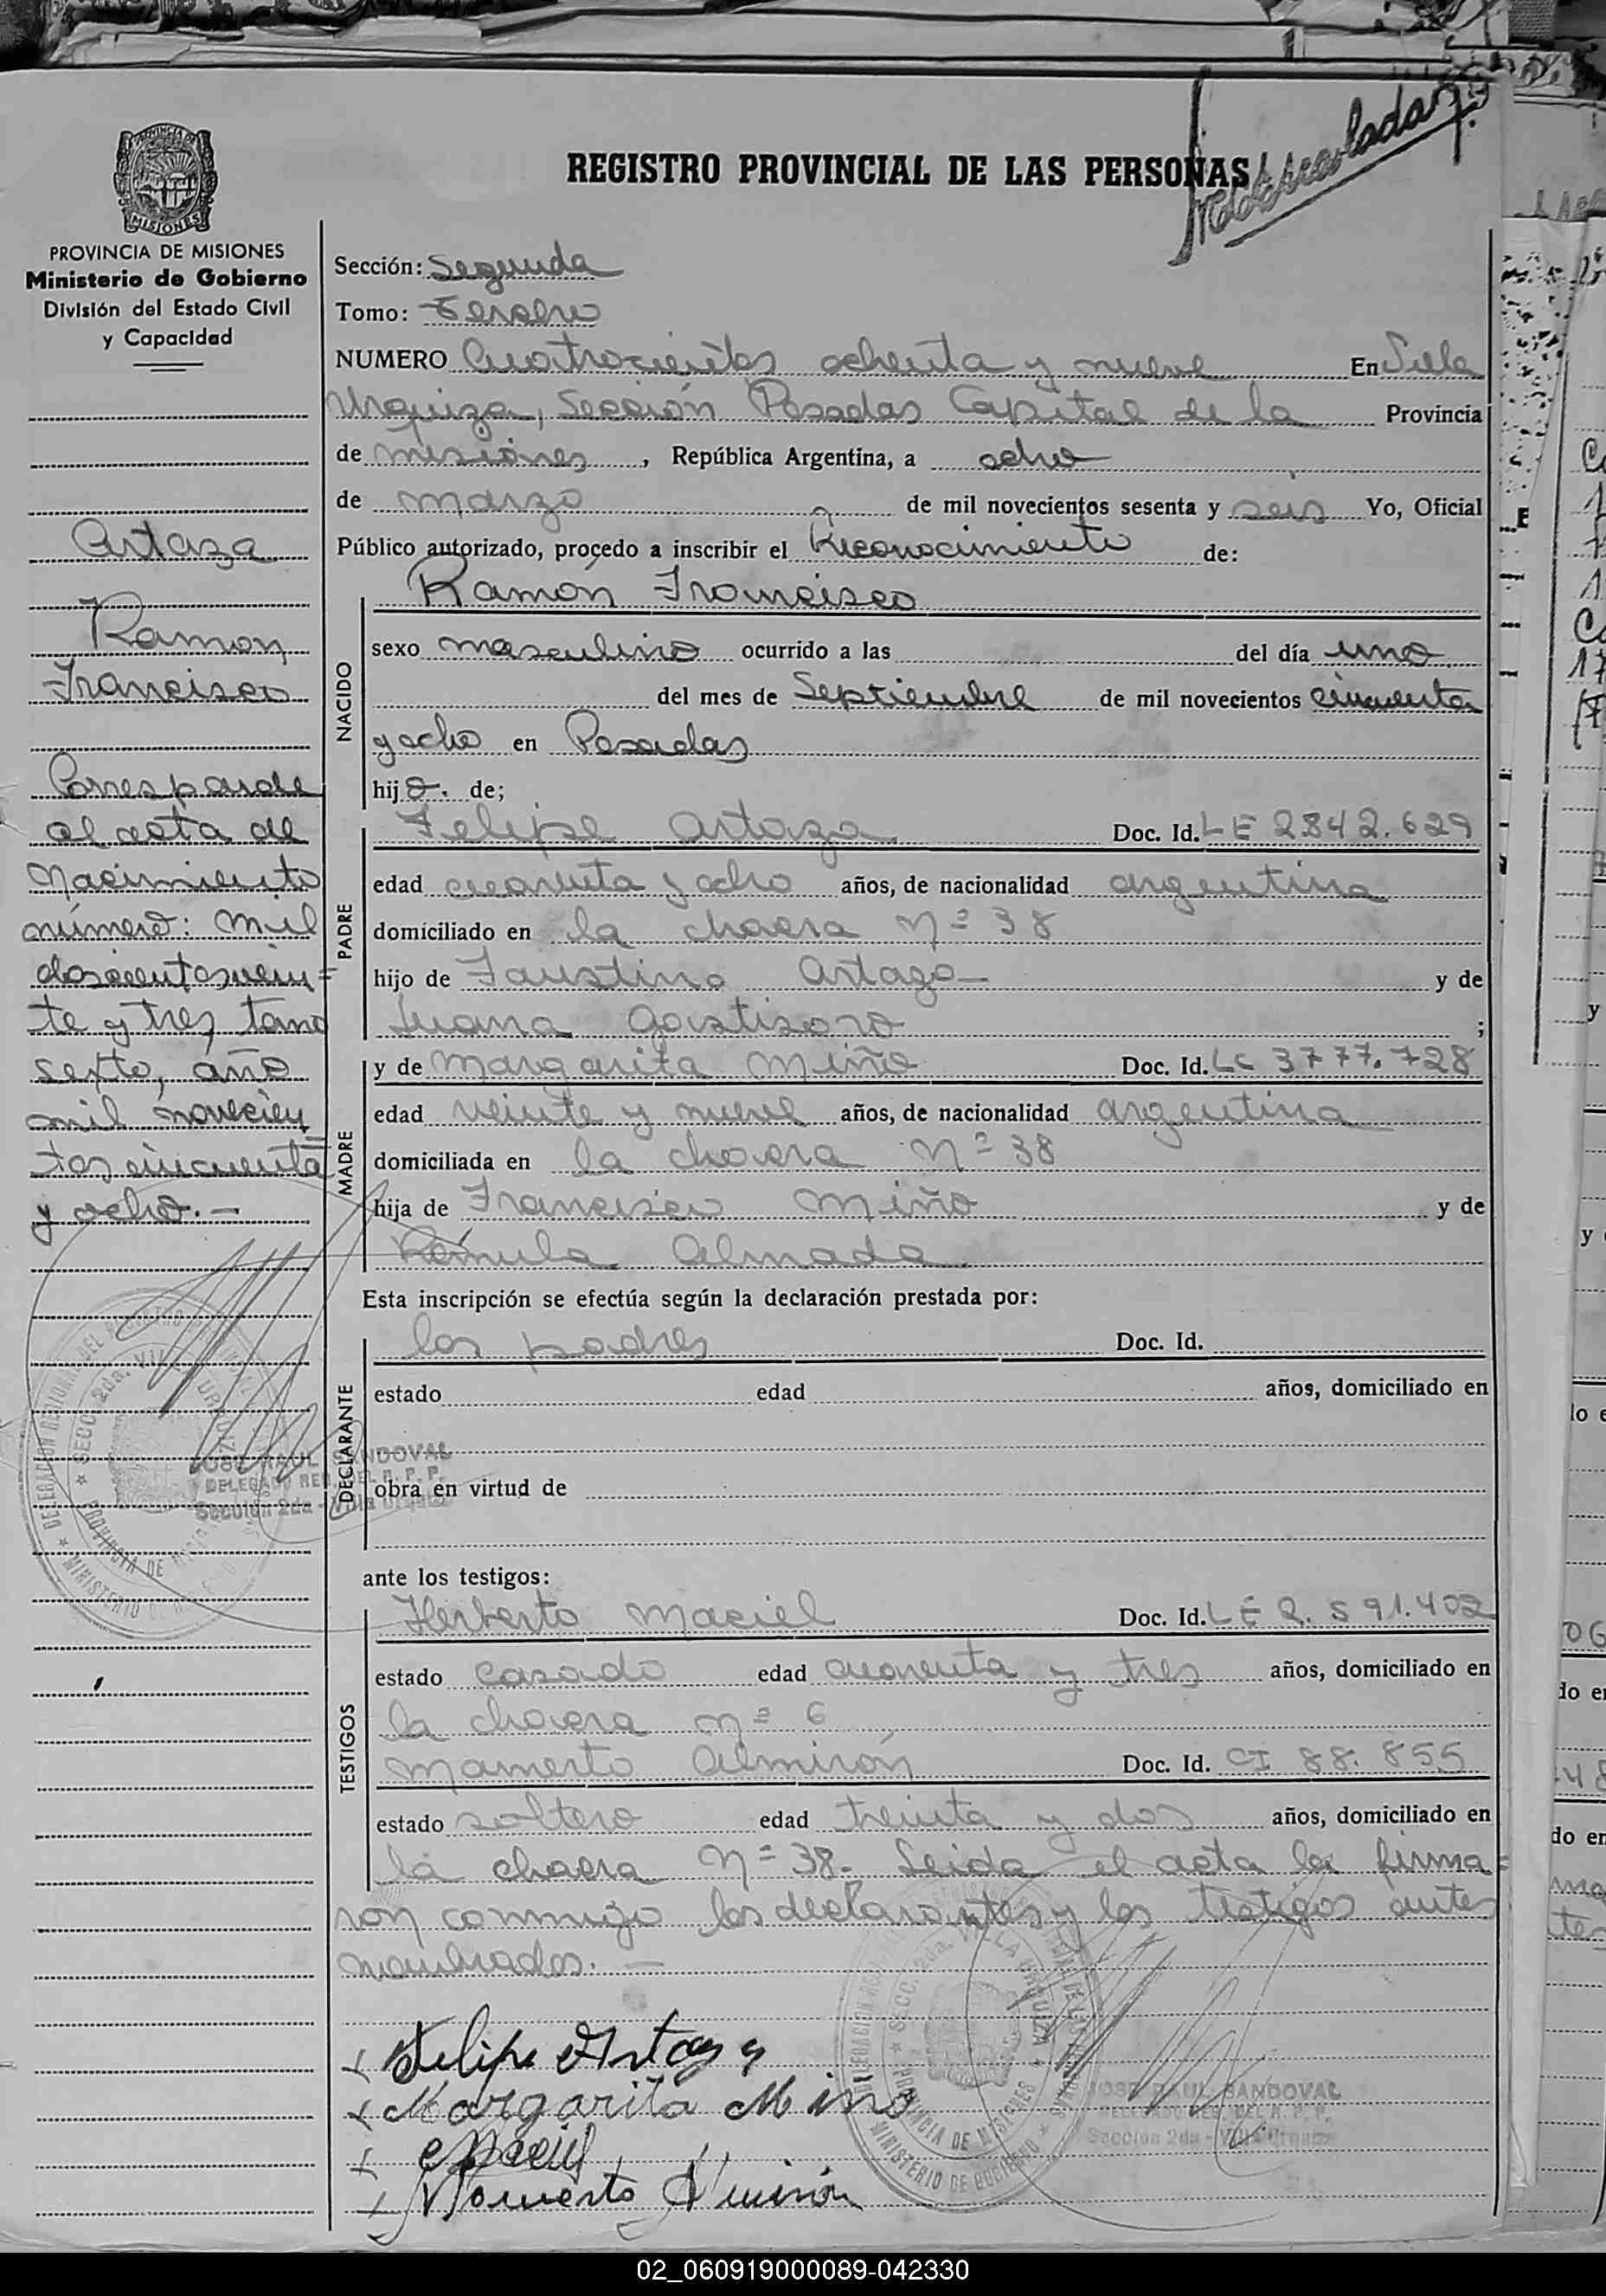 REGISTRO PROVINCIAL DE LAS PERSONAS
PROVINCIA DE MISIONES
Ministerio de Gobierno
División del Estado Civil
y Capacidad
Artaza
Ramon
Francisco
Corresponde
al acta de
Nacimiento
número: mil
doscientos vein=
te y tres, tomo
sexto, año
mil novecien
tos cincuenta
y ocho.-
Sección: Segunda
Tomo: Tercero
NUMERO Cuatrocientos ochenta y nueve En Villa
Urquiza, Sección Posadas Capital de la Provincia
de misiones, República Argentina, a ocho
de marzo de mil novecientos sesenta y seis Yo, Oficial
Público autorizado, procedo a inscribir el Reconocimiento de:
Ramón Francisco
NACIDO
sexo masculino ocurrido a las del día uno
del mes de Septiembre de mil novecientos cincuenta
y ocho en Posadas
hijo. de;
PADRE
Felipe Artaza Doc. Id. LE 2842.629
edad cuarenta y ocho años, de nacionalidad argentina
domiciliado en la chacra Nº 38
hijo de Faustino Artaza y de
Juana Gastizoro ;
MADRE
y de Margarita Miño Doc. Id. LC 3777.728
edad veinte y nueve años, de nacionalidad argentina
domiciliada en la chacra Nº 38
hija de Francisco Miño y de
Rémula Almada
Esta inscripción se efectúa según la declaración prestada por:
DECLARANTE
los padres Doc. Id.
estado edad años, domiciliado en
obra en virtud de
ante los testigos:
TESTIGOS
Herberto Maciel Doc. Id. LE 2.591.402
estado casado edad cuarenta y tres años, domiciliado en
la chacra nº 6
Mamerto Almirón Doc. Id. CI 88.855
estado soltero edad treinta y dos años, domiciliado en
la chacra Nº 38- Leida el acta la firma=
ron conmigo los declarantes y los testigos antes
nombrados.-
Felipe Artaza
Margarita Mino
Mamerto Almirón
JOSE RAUL SANDOVAL
DELEGADO REG. DEL R. P. P.
Sección 2da - Villa Urquiza
JOSE RAUL SANDOVAL
DELEGADO REG. DEL R. P. P.
Sección 2da - Villa Urquiza
02_060919000089-042330